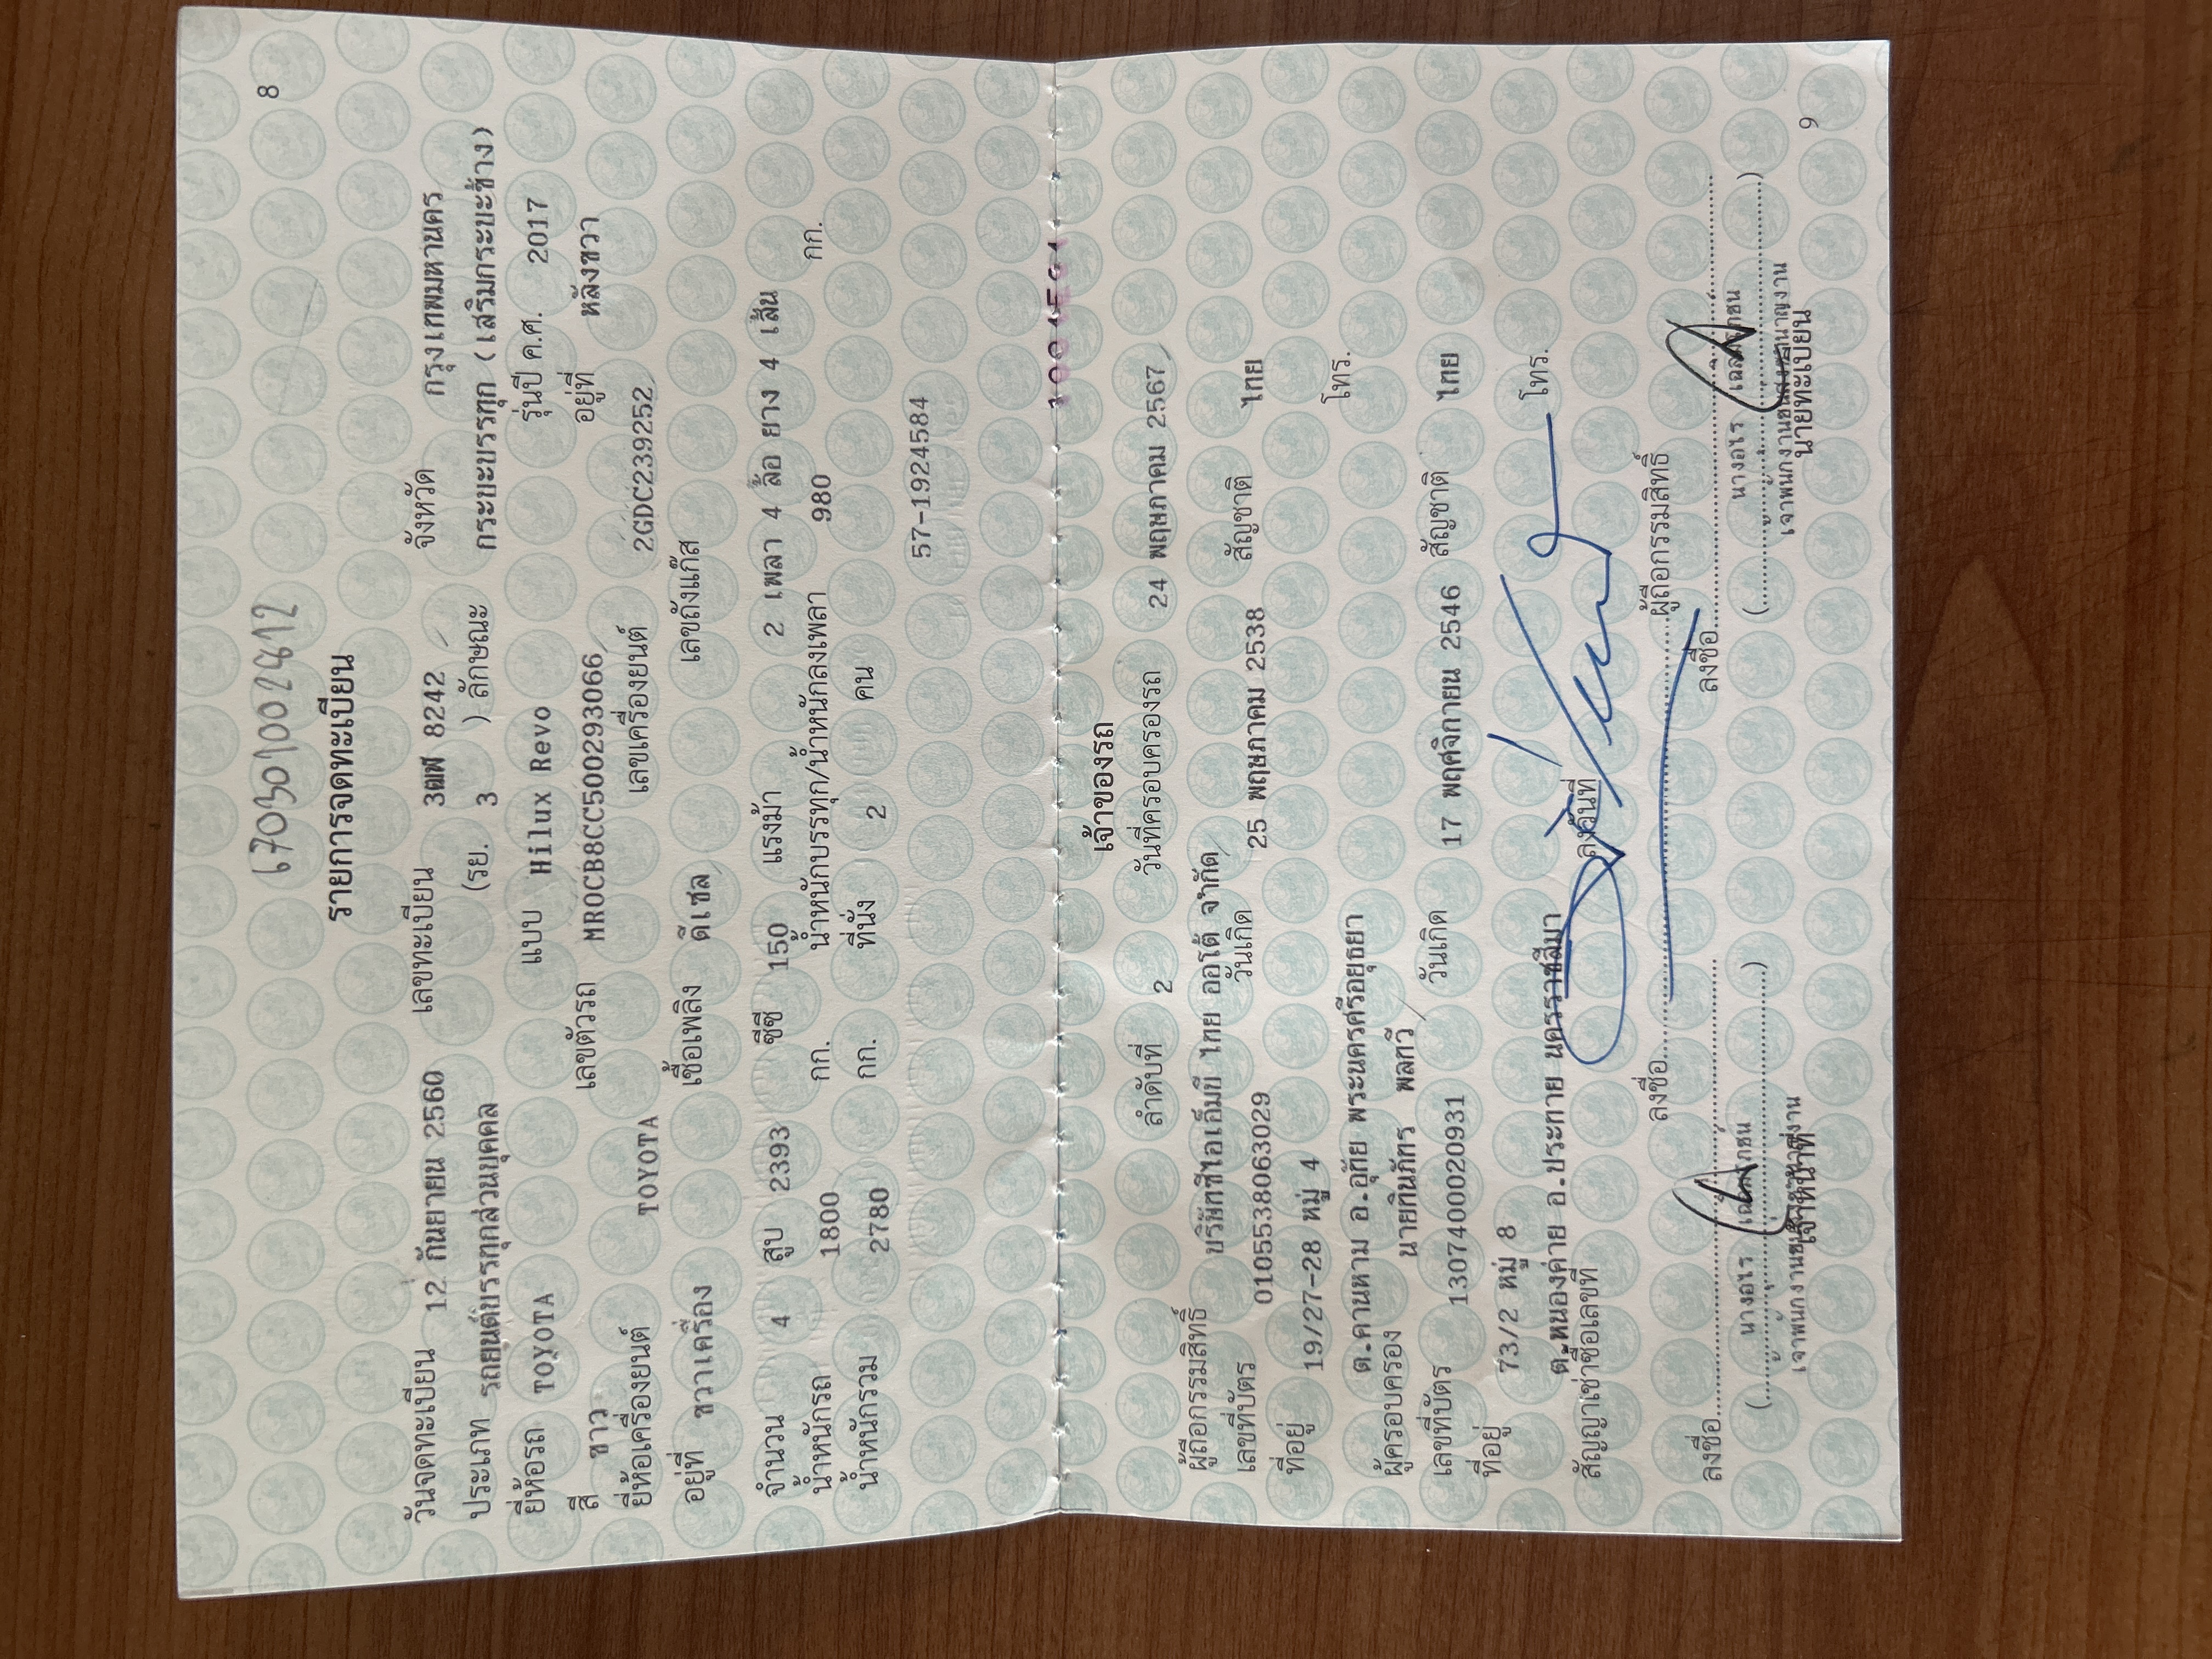 8
670301002812
รายการจดทะเบียน
วันจดทะเบียน 12 กันยายน 2560 เลขทะเบียน 3ฒฬ 8242 จังหวัด กรุงเทพมหานคร
ประเภท รถยนต์บรรทุกส่วนบุคคล (รย. 3 ) ลักษณะ กระบะบรรทุก (เสริมกระบะข้าง)
ยี่ห้อรถ TOYOTA แบบ Hilux Revo รุ่นปี ค.ศ. 2017
สี ขาว เลขตัวรถ MR0CB8CC500293066 อยู่ที่ หลังขวา
ยี่ห้อเครื่องยนต์ TOYOTA เลขเครื่องยนต์ 2GDC239252
อยู่ที่ ขวาเครื่อง เชื้อเพลิง ดีเซล เลขถังแก๊ส
จำนวน 4 สูบ 2393 ซีซี 150 แรงม้า 2 เพลา 4 ล้อ ยาง 4 เส้น
น้ำหนักรถ 1800 กก. น้ำหนักบรรทุก/น้ำหนักลงเพลา 980 กก.
น้ำหนักรวม 2780 กก. ที่นั่ง 2 คน
57-1924584
เจ้าของรถ
ลำดับที่ 2 วันที่ครอบครองรถ 24 พฤษภาคม 2567
ผู้ถือกรรมสิทธิ์ บริษัทซีไอเอ็มบี ไทย ออโต้ จำกัด
เลขที่บัตร 0105538063029 วันเกิด 25 พฤษภาคม 2538 สัญชาติ ไทย
ที่อยู่ 19/27-28 หมู่ 4
ต.คานหาม อ.อุทัย พระนครศรีอยุธยา โทร.
ผู้ครอบครอง นายทินภัทร พลทวี
เลขที่บัตร 1307400020931 วันเกิด 17 พฤศจิกายน 2546 สัญชาติ ไทย
ที่อยู่ 73/2 หมู่ 8
ต.หนองค่าย อ.ประทาย นครราชสีมา โทร.
สัญญาเช่าซื้อเลขที่ ลงวันที่
ลงชื่อ..........ผู้ถือกรรมสิทธิ์
ลงชื่อ.......... ลงชื่อ..........
(..........) (..........)
นางอุไร นางอุไร
เจ้าหน้าที่ นายทะเบียน
9